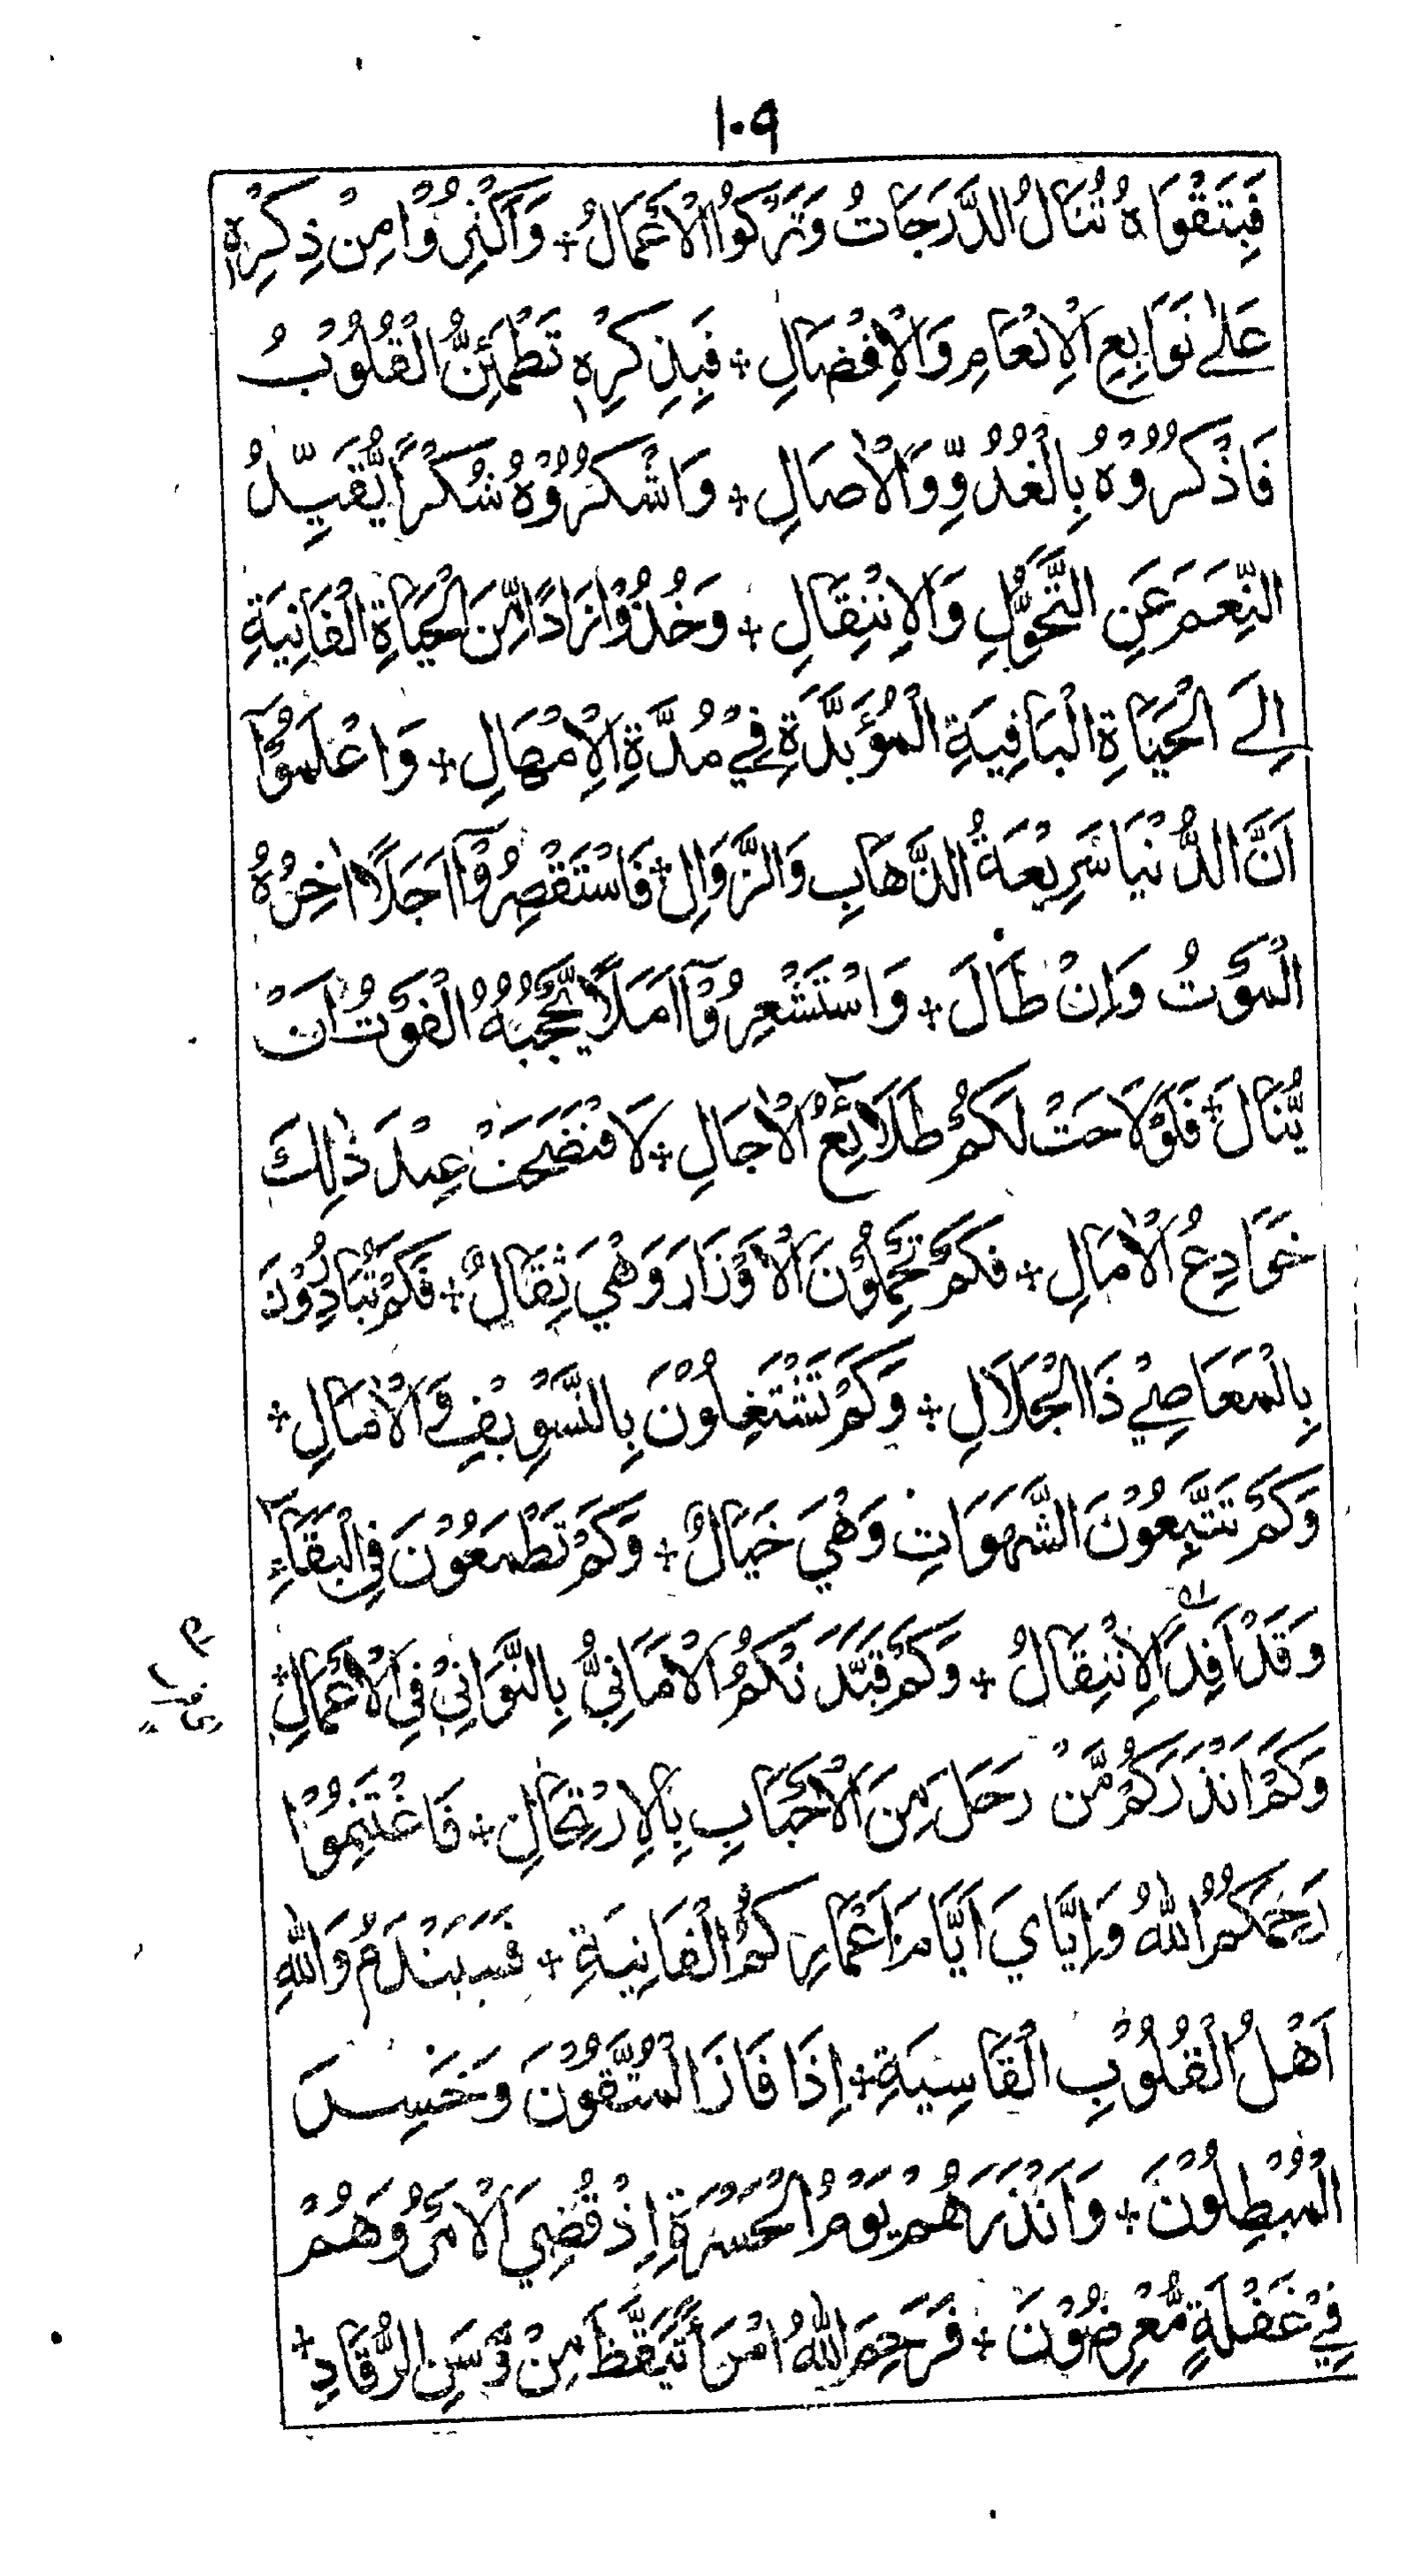 ۱۰۹
فَبِتَقْوَاهُ تُنَالُ الدَّرَجَاتُ وَتَزْكُوا الْأَعْمَالُ + وَاَكْثِرُوْا مِنْ ذِكْرِهٖ
عَلٰى نَوَابِعِ الْاِنْعَامِ وَالْاِفْضَالِ + فَبِذِكْرِهٖ تَطْمَئِنُّ الْقُلُوْبُ
فَاذْكُرُوْهُ بِالْغُدُوِّ وَالْاٰصَالِ + وَاشْكُرُوْهُ شُكْرًا يُّقَيِّدُ
النِّعَمَ عَنِ التَّحَوُّلِ وَالْاِنْتِقَالِ + وَخُذُوْا زَادًا مِّنَ الْحَيَاةِ الْفَانِيَةِ
اِلَى الْحَيَاةِ الْبَاقِيَةِ الْمُؤَبَّدَةِ فِيْ مُدَّةِ الْاِمْهَالِ + وَاعْلَمُوْآ
اَنَّ الدُّنْيَا سَرِيْعَةُ الذَّهَابِ وَالزَّوَالِ + فَاسْتَقْصِرُوْآ اَجَلًا اٰخِرُهُ
الْمَوْتُ وَاِنْ طَالَ + وَاسْتَشْعِرُوْآ اَمَلًا يَّحْجُبُهُ الْفَوْتُ اَنْ
يُّنَالَ + فَلَوْ لَاحَتْ لَكُمْ طَلَآئِعُ الْاٰجَالِ + لَافْتَضَحَتْ عِنْدَ ذٰلِكَ
خَوَادِعُ الْاٰمَالِ + فَكَمْ تَحْمِلُوْنَ الْاَوْزَارَ وَهْيَ ثِقَالٌ + فَكَمْ تُبَادِرُوْنَ
بِالْمَعَاصِيْ ذَا الْجَلَالِ + وَكَمْ تَشْتَغِلُوْنَ بِالتَّسْوِيْفِ وَالْاٰمَالِ +
وَكَمْ تَتَّبِعُوْنَ الشَّهَوَاتِ وَهْيَ خَيَالٌ + وَكَمْ تَطْمَعُوْنَ فِي الْبَقَآءِ
وَقَدْ اَفِدَ الْاِنْتِقَالُ + وَكَمْ قَيَّدَتْكُمُ الْاَمَانِيُّ بِالتَّوَانِيْ فِي الْاَعْمَالِ +
وَكَمْ اَنْذَرَكُمْ مَّنْ رَحَلَ مِنَ الْاَحْبَابِ بِالْاِرْتِحَالِ + فَاغْتَنِمُوْا
رَحِمَكُمُ اللهُ وَاِيَّايَ اَيَّامَ اَعْمَارِكُمُ الْفَانِيَةِ + فَسَيَنْدَمُ وَاللهِ
اَهْلُ الْقُلُوْبِ الْقَاسِيَةِ + اِذَا فَازَ الْمُتَّقُوْنَ وَخَسِرَ
الْمُبْطِلُوْنَ + وَاَنْذِرْهُمْ يَوْمَ الْحَسْرَةِ اِذْ قُضِيَ الْاَمْرُ وَهُمْ
فِيْ غَفْلَةٍ مُّعْرِضُوْنَ + فَرَحِمَ اللهُ امْرَأً تَيَقَّظَ مِنْ وَسَنِ الرُّقَادِ +